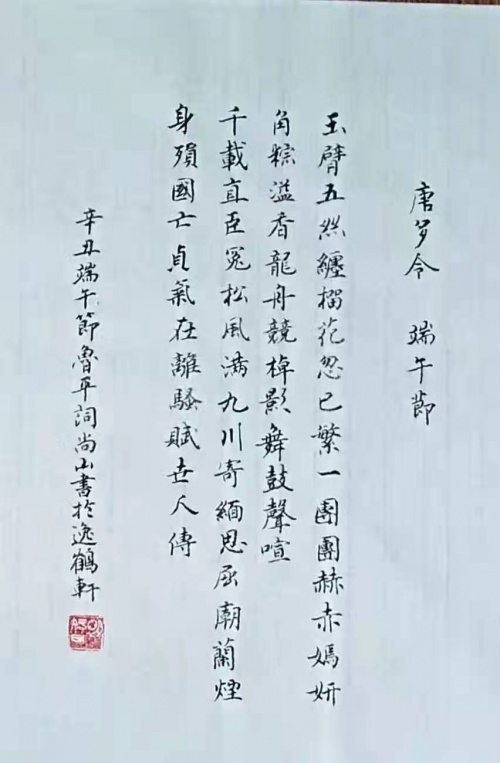 唐多令 端午節
玉臂五丝纏榴花忽已繁一團團赫赤嫣妍
角粽溢香龍舟競棹影舞鼓聲喧
千載直臣冤松風满九川寄緬思屈廟蘭煙
身殞國亡貞氣在離騷賦世人傳
辛丑端午節魯平詞尚山書於逸鶴軒